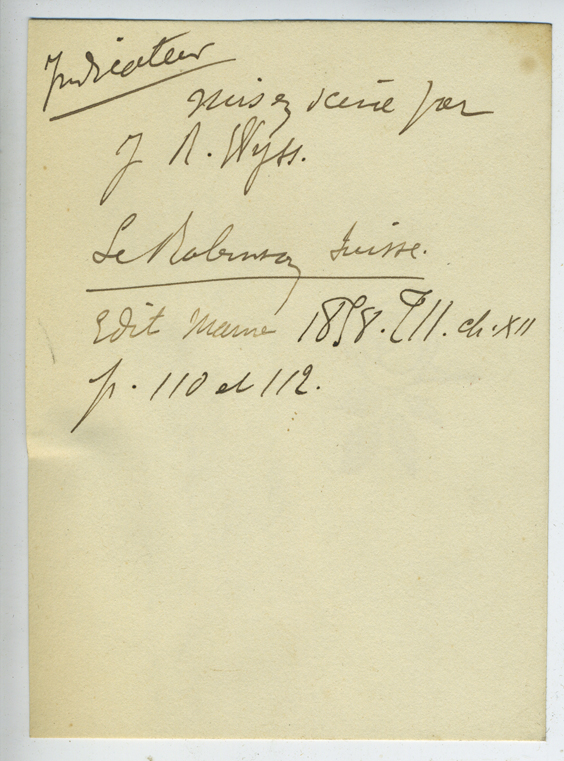 Indicateur
mis en scène par
J R. Wyss.
Le Robinson Suisse.
Edit Mame 1858. T II. ch. XII
p. 110 et 112.